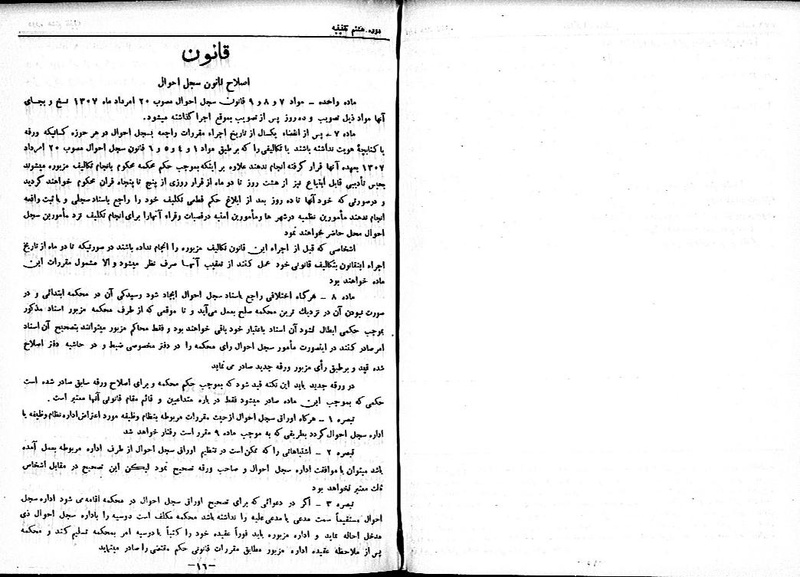 دوره هشتم تقنینیه
قانون
اصلاح قانون سجل احوال
ماده واحده – مواد ۷ و ۸ و ۹ قانون سجل احوال مصوب ۲۰ امرداد ماه ۱۳۰۷ نسخ و بجای
آنها مواد ذیل تصویب و ده روز پس از تصویب بموقع اجرا گذاشته میشود.
ماده ۷ – پس از انقضاء یکسال از تاریخ اجراء مقررات راجعه بسجل احوال در هر حوزه کسانیکه ورقه
یا کتابچهٔ هویت نداشته باشند یا تکالیفی را که بر طبق مواد ۱ و ۴ و ۵ و ۶ قانون سجل احوال مصوب ۲۰ امرداد
۱۳۰۷ بعهده آنها قرار گرفته انجام ندهند علاوه بر اینکه بموجب حکم محکمه محکوم بانجام تکالیف مزبوره میشوند
بحبس تأدیبی قابل ابتیاع نیز از هشت روز تا دو ماه از قرار روزی از پنج تا پنجاه قران محکوم خواهند گردید
و در صورتی که خود آنها تا ده روز بعد از ابلاغ حکم قطعی تکلیف خود را راجع باسناد سجلی و یا ثبت واقعه
انجام ندهند مأمورین نظمیه در شهر ها و مأمورین امنیه در قصبات و قراء آنها را برای انجام تکلیف نزد مأمورین سجل
احوال محل حاضر خواهند نمود
اشخاصی که قبل از اجراء این قانون تکالیف مزبوره را انجام نداده باشند در صورتیکه تا دو ماه از تاریخ
اجراء اینقانون بتکالیف قانونی خود عمل کنند از تعقیب آنها صرف نظر میشود و الا مشمول مقررات این
ماده خواهند بود
ماده ۸ – هر گاه اختلافی راجع باسناد سجل احوال ایجاد شود رسیدگی آن در محکمه ابتدائی و در
صورت نبودن آن در نزدیك ترین محکمه صلح بعمل می‌آید و تا موقعی که از طرف محکمه مزبور اسناد مذکور
بموجب حکمی ابطال نشود آن اسناد باعتبار خود باقی خواهند بود و فقط محاکم مزبور میتوانند بتصحیح آن اسناد
امر صادر کنند در اینصورت مأمور سجل احوال رای محکمه را در دفتر مخصوصی ضبط و در حاشیه دفتر اصلاح
شده قید و بر طبق رأی مزبور ورقه جدید صادر می نماید
در ورقه جدید باید این نکته قید شود که بموجب حکم محکمه و برای اصلاح ورقه سابق صادر شده است
حکمی که بموجب این ماده صادر میشود فقط در باره متداعیین و قائم مقام قانونی آنها معتبر است .
تبصره ۱ – هر گاه اوراق سجل احوال از حیث مقررات مربوطه بنظام وظیفه مورد اعتراض اداره نظام وظیفه یا
اداره سجل احوال گردد بطریقی که به موجب ماده ۹ مقرر است رفتار خواهد شد
تبصره ۲ – اشتباهاتی را که ممکن است در تنظیم اوراق سجل احوال از طرف اداره مربوطه بعمل آمده
باشد میتوان با موافقت اداره سجل احوال و صاحب ورقه تصحیح نمود لیکن این تصحیح در مقابل اشخاص
ثالث معتبر نخواهد بود
تبصره ۳ – اگر در دعوائی که برای تصحیح اوراق سجل احوال در محکمه اقامه می شود اداره سجل
احوال مستقیماً سمت مدعی یا مدعی علیه را نداشته باشد محکمه مکلف است دوسیه را باداره سجل احوال ذی
مدخل احاله نماید و اداره مزبوره باید فوراً عقیده خود را کتباً با دوسیه امر بمحکمه تسلیم کند و محکمه
پس از ملاحظه عقیده اداره مزبور مطابق مقررات قانونی حکم مقتضی را صادر مینماید
–۱۶–